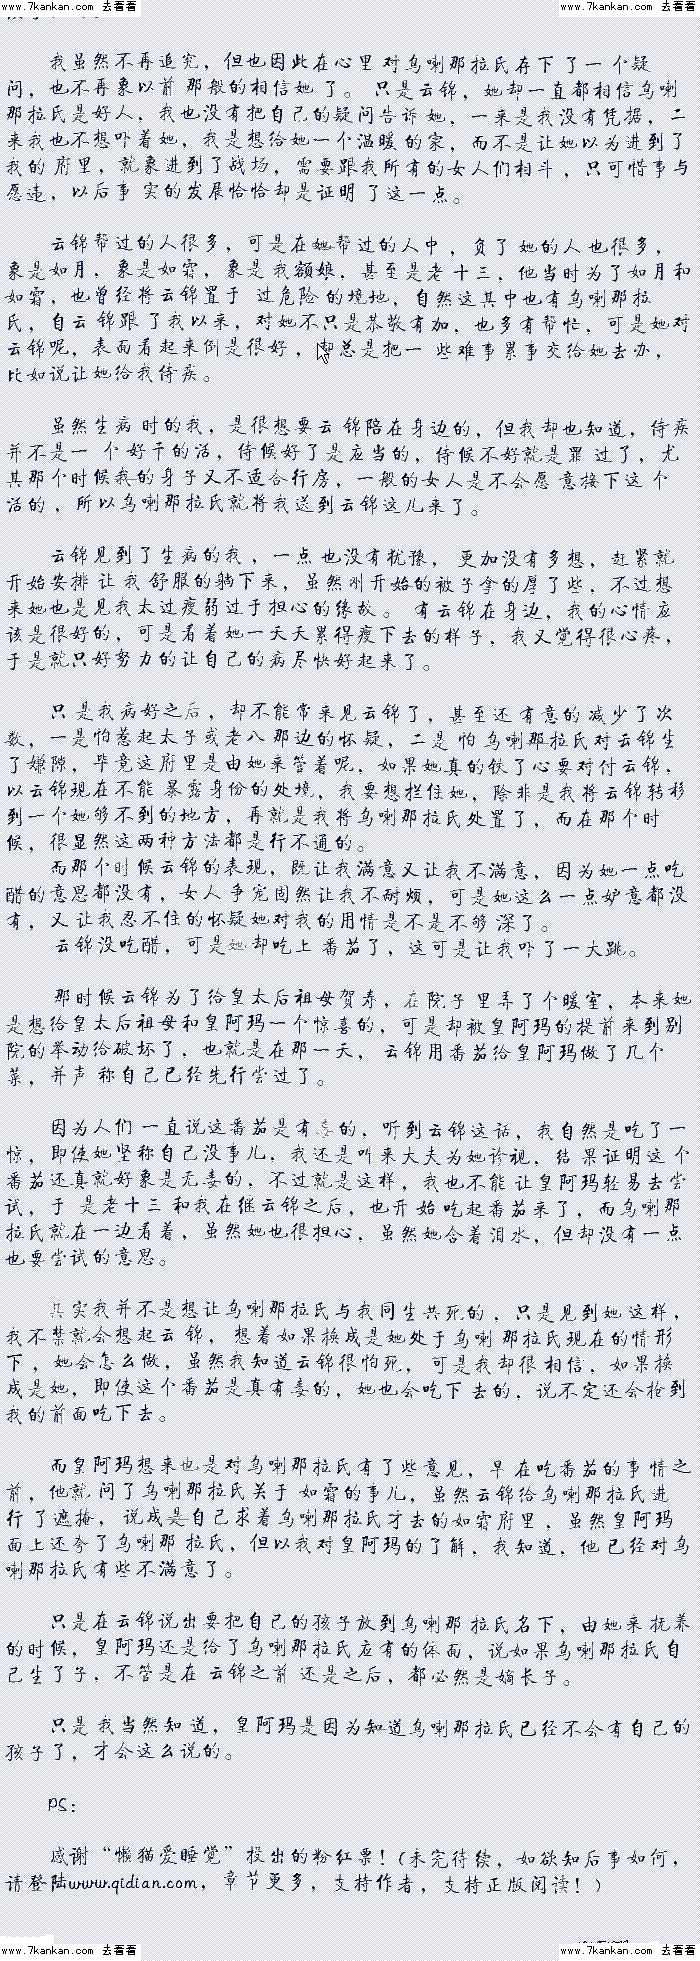 www.7kankan.com 去看看 www.7kankan.com 去看看
我虽然不再追究，但也因此在心里对乌喇那拉氏存下了一个疑
问，也不再象以前那般的相信她了。只是云锦，她却一直都相信乌喇
那拉氏是好人，我也没有把自己的疑问告诉她，一来是我没有凭据，二
来我也不想吓着她，我是想给她一个温暖的家，而不是让她以为进到了
我的府里，就象进到了战场，需要跟我所有的女人们相斗，只可惜事与
愿违，以后事实的发展恰恰却是证明了这一点。
云锦帮过的人很多，可是在她帮过的人中，负了她的人也很多，
象是如月，象是如霜，象是我额娘，甚至是老十三，他当时为了如月和
如霜，也曾经将云锦置于过危险的境地，自然这其中也有乌喇那拉
氏，自云锦跟了我以来，对她不只是恭敬有加，也多有帮忙，可是她对
云锦呢，表面看起来倒是很好，却总是把一些难事累事交给她去办，
比如说让她给我侍疾。
虽然生病时的我，是很想要云锦陪在身边的，但我却也知道，侍疾
并不是一个好干的活，侍候好了是应当的，侍候不好就是罪过了，尤
其那个时候我的身子又不适合行房，一般的女人是不会愿意接下这个
活的，所以乌喇那拉氏就将我送到云锦这儿来了。
云锦见到了生病的我，一点也没有犹豫，更加没有多想，赶紧就
开始安排让我舒服的躺下来，虽然刚开始的被子拿的厚了些，不过想
来她也是见我太过瘦弱过于担心的缘故。有云锦在身边，我的心情应
该是很好的，可是看着她一天天累得瘦下去的样子，我又觉得很心疼，
于是就只好努力的让自己的病尽快好起来了。
只是我病好之后，却不能常来见云锦了，甚至还有意的减少了次
数，一是怕惹起太子或老八那边的怀疑，二是怕乌喇那拉氏对云锦生
了嫌隙，毕竟这府里是由她来管着呢，如果她真的铁了心要对付云锦，
以云锦现在不能暴露身份的处境，我要想拦住她，除非是我将云锦转移
到一个她够不到的地方，再就是我将乌喇那拉氏处置了，而在那个时
候，很显然这两种方法都是行不通的。
而那个时候云锦的表现，既让我满意又让我不满意，因为她一点吃
醋的意思都没有，女人争宠固然让我不耐烦，可是她这么一点妒意都没
有，又让我忍不住的怀疑她对我的用情是不是不够深了。
云锦没吃醋，可是她却吃上番茄了，这可是让我吓了一大跳。
那时候云锦为了给皇太后祖母贺寿，在院子里弄了个暖室，本来她
是想给皇太后祖母和皇阿玛一个惊喜的，可是却被皇阿玛的提前来到别
院的举动给破坏了，也就是在那一天，云锦用番茄给皇阿玛做了几个
菜，并声称自己已经先行尝过了。
因为人们一直说这番茄是有毒的，听到云锦这话，我自然是吃了一
惊，即使她坚称自己没事儿，我还是叫来大夫为她诊视，结果证明这个
番茄还真就好象是无毒的，不过就是这样，我也不能让皇阿玛轻易去尝
试，于是老十三和我在继云锦之后，也开始吃起番茄来了，而乌喇那
拉氏就在一边看着，虽然她也很担心，虽然她含着泪水，但却没有一点
也要尝试的意思。
其实我并不是想让乌喇那拉氏与我同生共死的，只是见到她这样，
我不禁就会想起云锦，想着如果换成是她处于乌喇那拉氏现在的情形
下，她会怎么做，虽然我知道云锦很怕死，可是我却很相信，如果换
成是她，即使这个番茄是真有毒的，她也会吃下去的，说不定还会抢到
我的前面吃下去。
而皇阿玛想来也是对乌喇那拉氏有了些意见，早在吃番茄的事情之
前，他就问了乌喇那拉氏关于如霜的事儿，虽然云锦给乌喇那拉氏进
行了遮掩，说成是自己求着乌喇那拉氏才去的如霜府里，虽然皇阿玛
面上还夸了乌喇那拉氏，但以我对皇阿玛的了解，我知道，他已经对乌
喇那拉氏有些不满意了。
只是在云锦说出要把自己的孩子放到乌喇那拉氏名下，由她来抚养
的时候，皇阿玛还是给了乌喇那拉氏应有的体面，说如果乌喇那拉氏自
己生了子，不管是在云锦之前还是之后，都必然是嫡长子。
只是我当然知道，皇阿玛是因为知道乌喇那拉氏已经不会有自己的
孩子了，才会这么说的。
PS：
感谢“懒猫爱睡觉”投出的粉红票！(未完待续，如欲知后事如何，
请登陆www.qidian.com，章节更多，支持作者，支持正版阅读！)
www.7kankan.com 去看看 www.7kankan.com 去看看